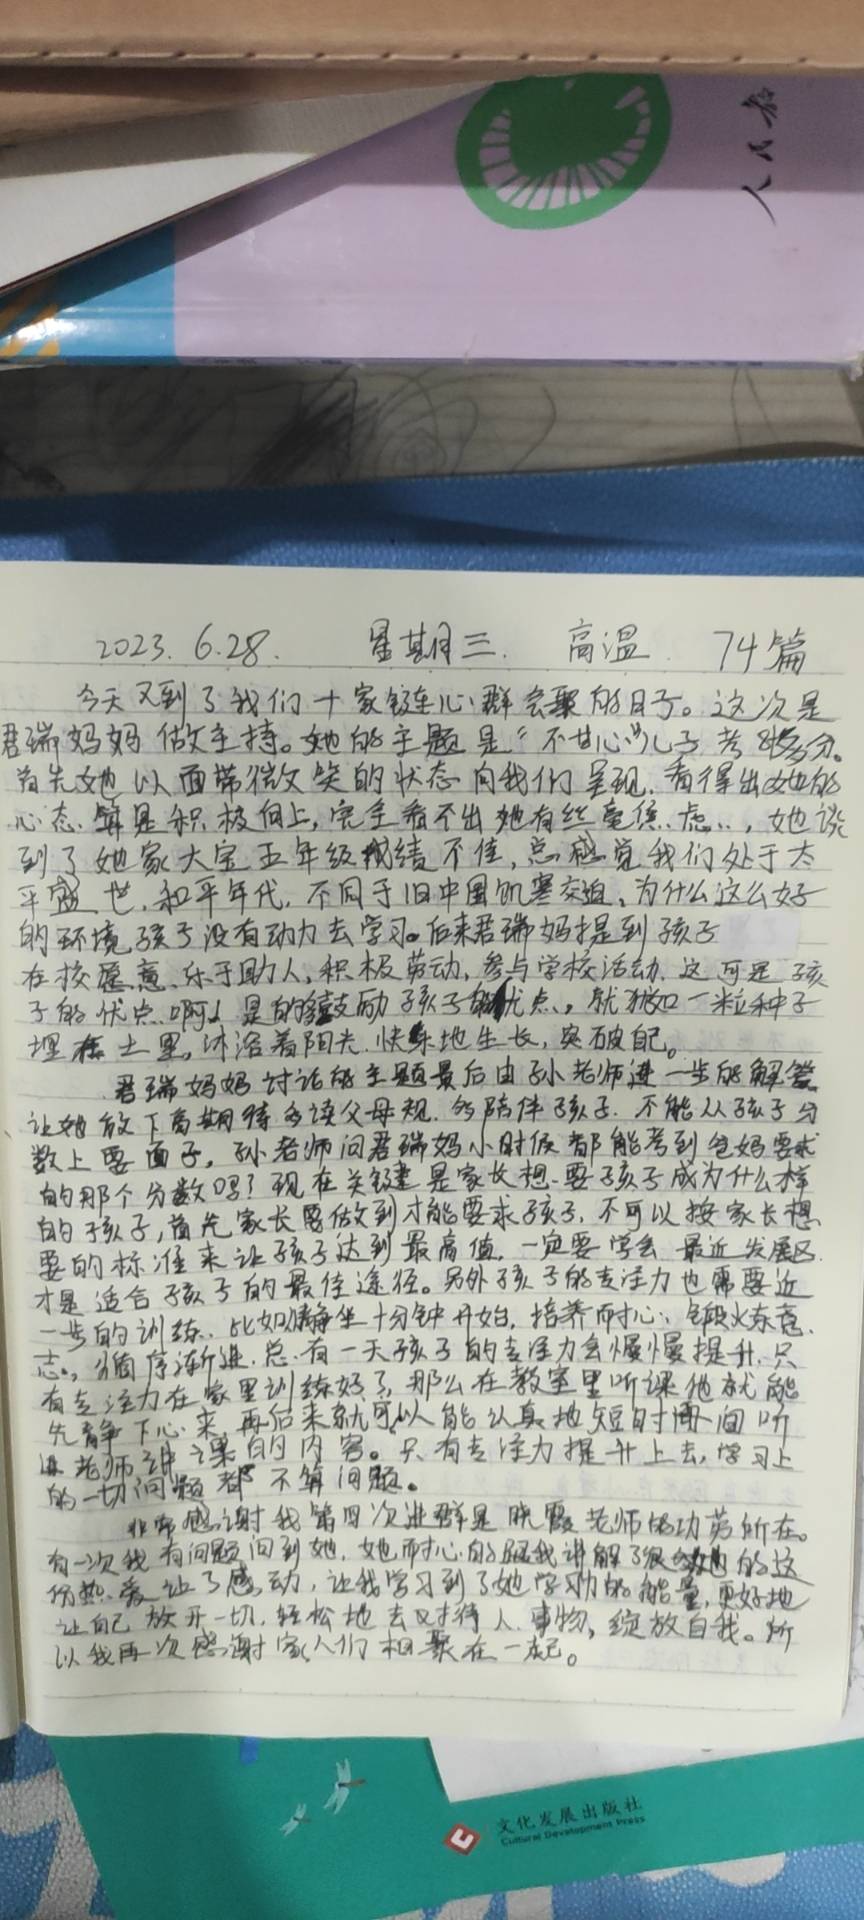 人民教
2023.6.28. 星期三. 高温. 74篇
今天又到了我们十家链心群会聚的日子。这次是
君瑞妈妈做主持。她的主题是"不甘心"儿子考多分。
首先她以面带微笑的状态向我们呈现.看得出她的
心态.算是积极向上,完全看不出她有丝毫焦.虑..,她谈
到了她家大宝五年级成绩不佳,总感觉我们处于太
平盛世.和平年代.不同于旧中国饥寒交迫、为什么这么好
的环境孩子没有动力去学习。后来君瑞妈提到孩子
在校愿意.乐于助人,积极劳动,参与学校活动.这可是孩
子的优点.啊!是的鼓励孩子的优点。就犹如一粒种子
埋在土里。沐浴着阳光.快乐地生长,突破自己。
君瑞妈妈讨论的主题最后由孙老师进一步的解答
让她放下高期待多读父母规.多陪伴孩子.不能从孩子分
数上要面子。孙老师问君瑞妈小时候都能考到爸妈要求
的那个分数吗?现在关键是家长想.要孩子成为什么样
的孩子,首先家长要做到才能要求孩子.不可以按家长想
要的标准来让孩子达到最高值.一定要学会最近发展区.
才是适合孩子的最佳途径。另外孩子的专注力也需要近
一步的训练.比如静坐十分钟开始.培养耐心.锻炼意.
志。循序渐进.总有一天孩子的专注力会慢慢提升.只
有专注力在家里训练好了,那么在教室里听课他就能
先静下心来.再后来就可以能认真地短时间听
进老师讲课的内容。只有专注力提升上去,学习上
的一切问题都不算问题。
非常感谢我第四次进群是晓霞老师的功劳所在。
有一次我有问题问到她.她耐心的跟我讲解了很多她的这
份热.爱让了感动,让我学习到了她学习的能量,更好地
让自己放开一切.轻松地去对待人.事物,绽放自我。所
以我再次感谢家人们相聚在一起。
文化发展出版社
Cultural Development Press